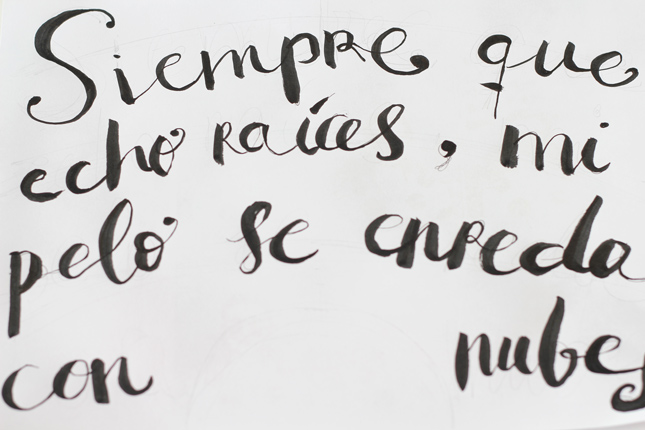 Siempre que
echo raíces, mi
pelo se enreda
con nubes